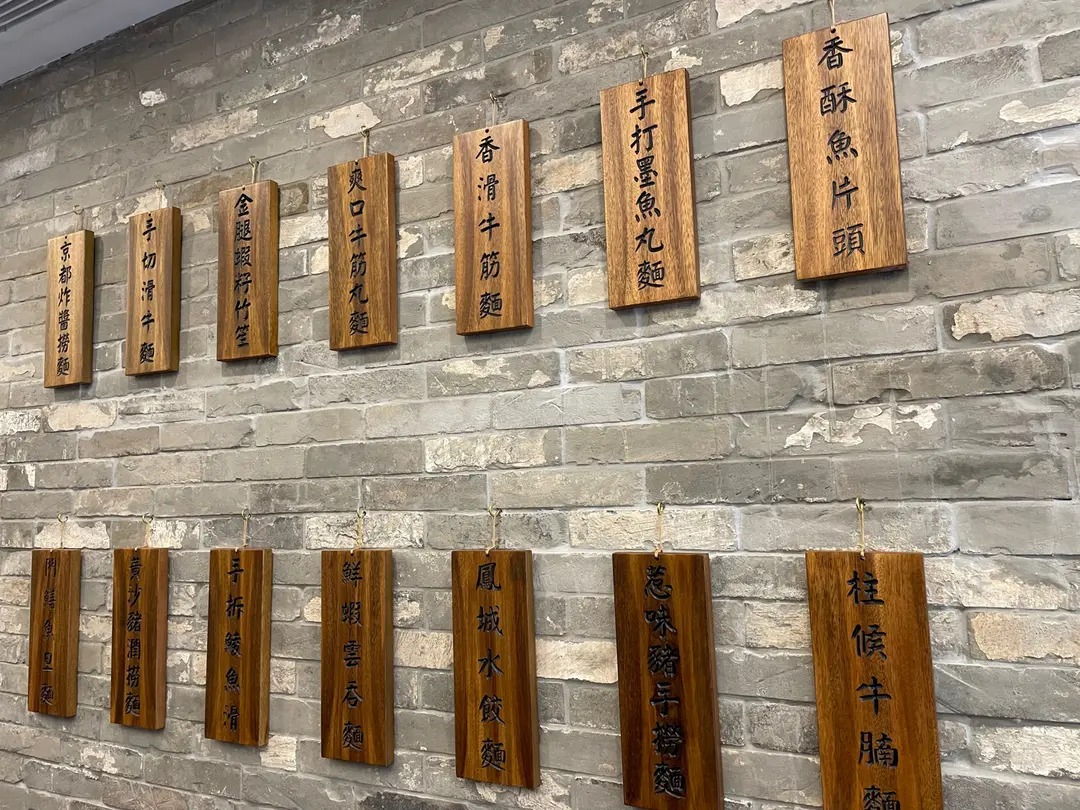 香酥魚片頭
手打墨魚丸麵
香滑牛筋麵
爽口牛筋丸麵
金腿蝦籽竹笙
手切滑牛麵
京都炸醬撈麵
柱候牛腩麵
惹味豬手撈麵
鳳城水餃麵
鮮蝦雲吞麵
手拆鯪魚滑
黃沙豬潤撈麵